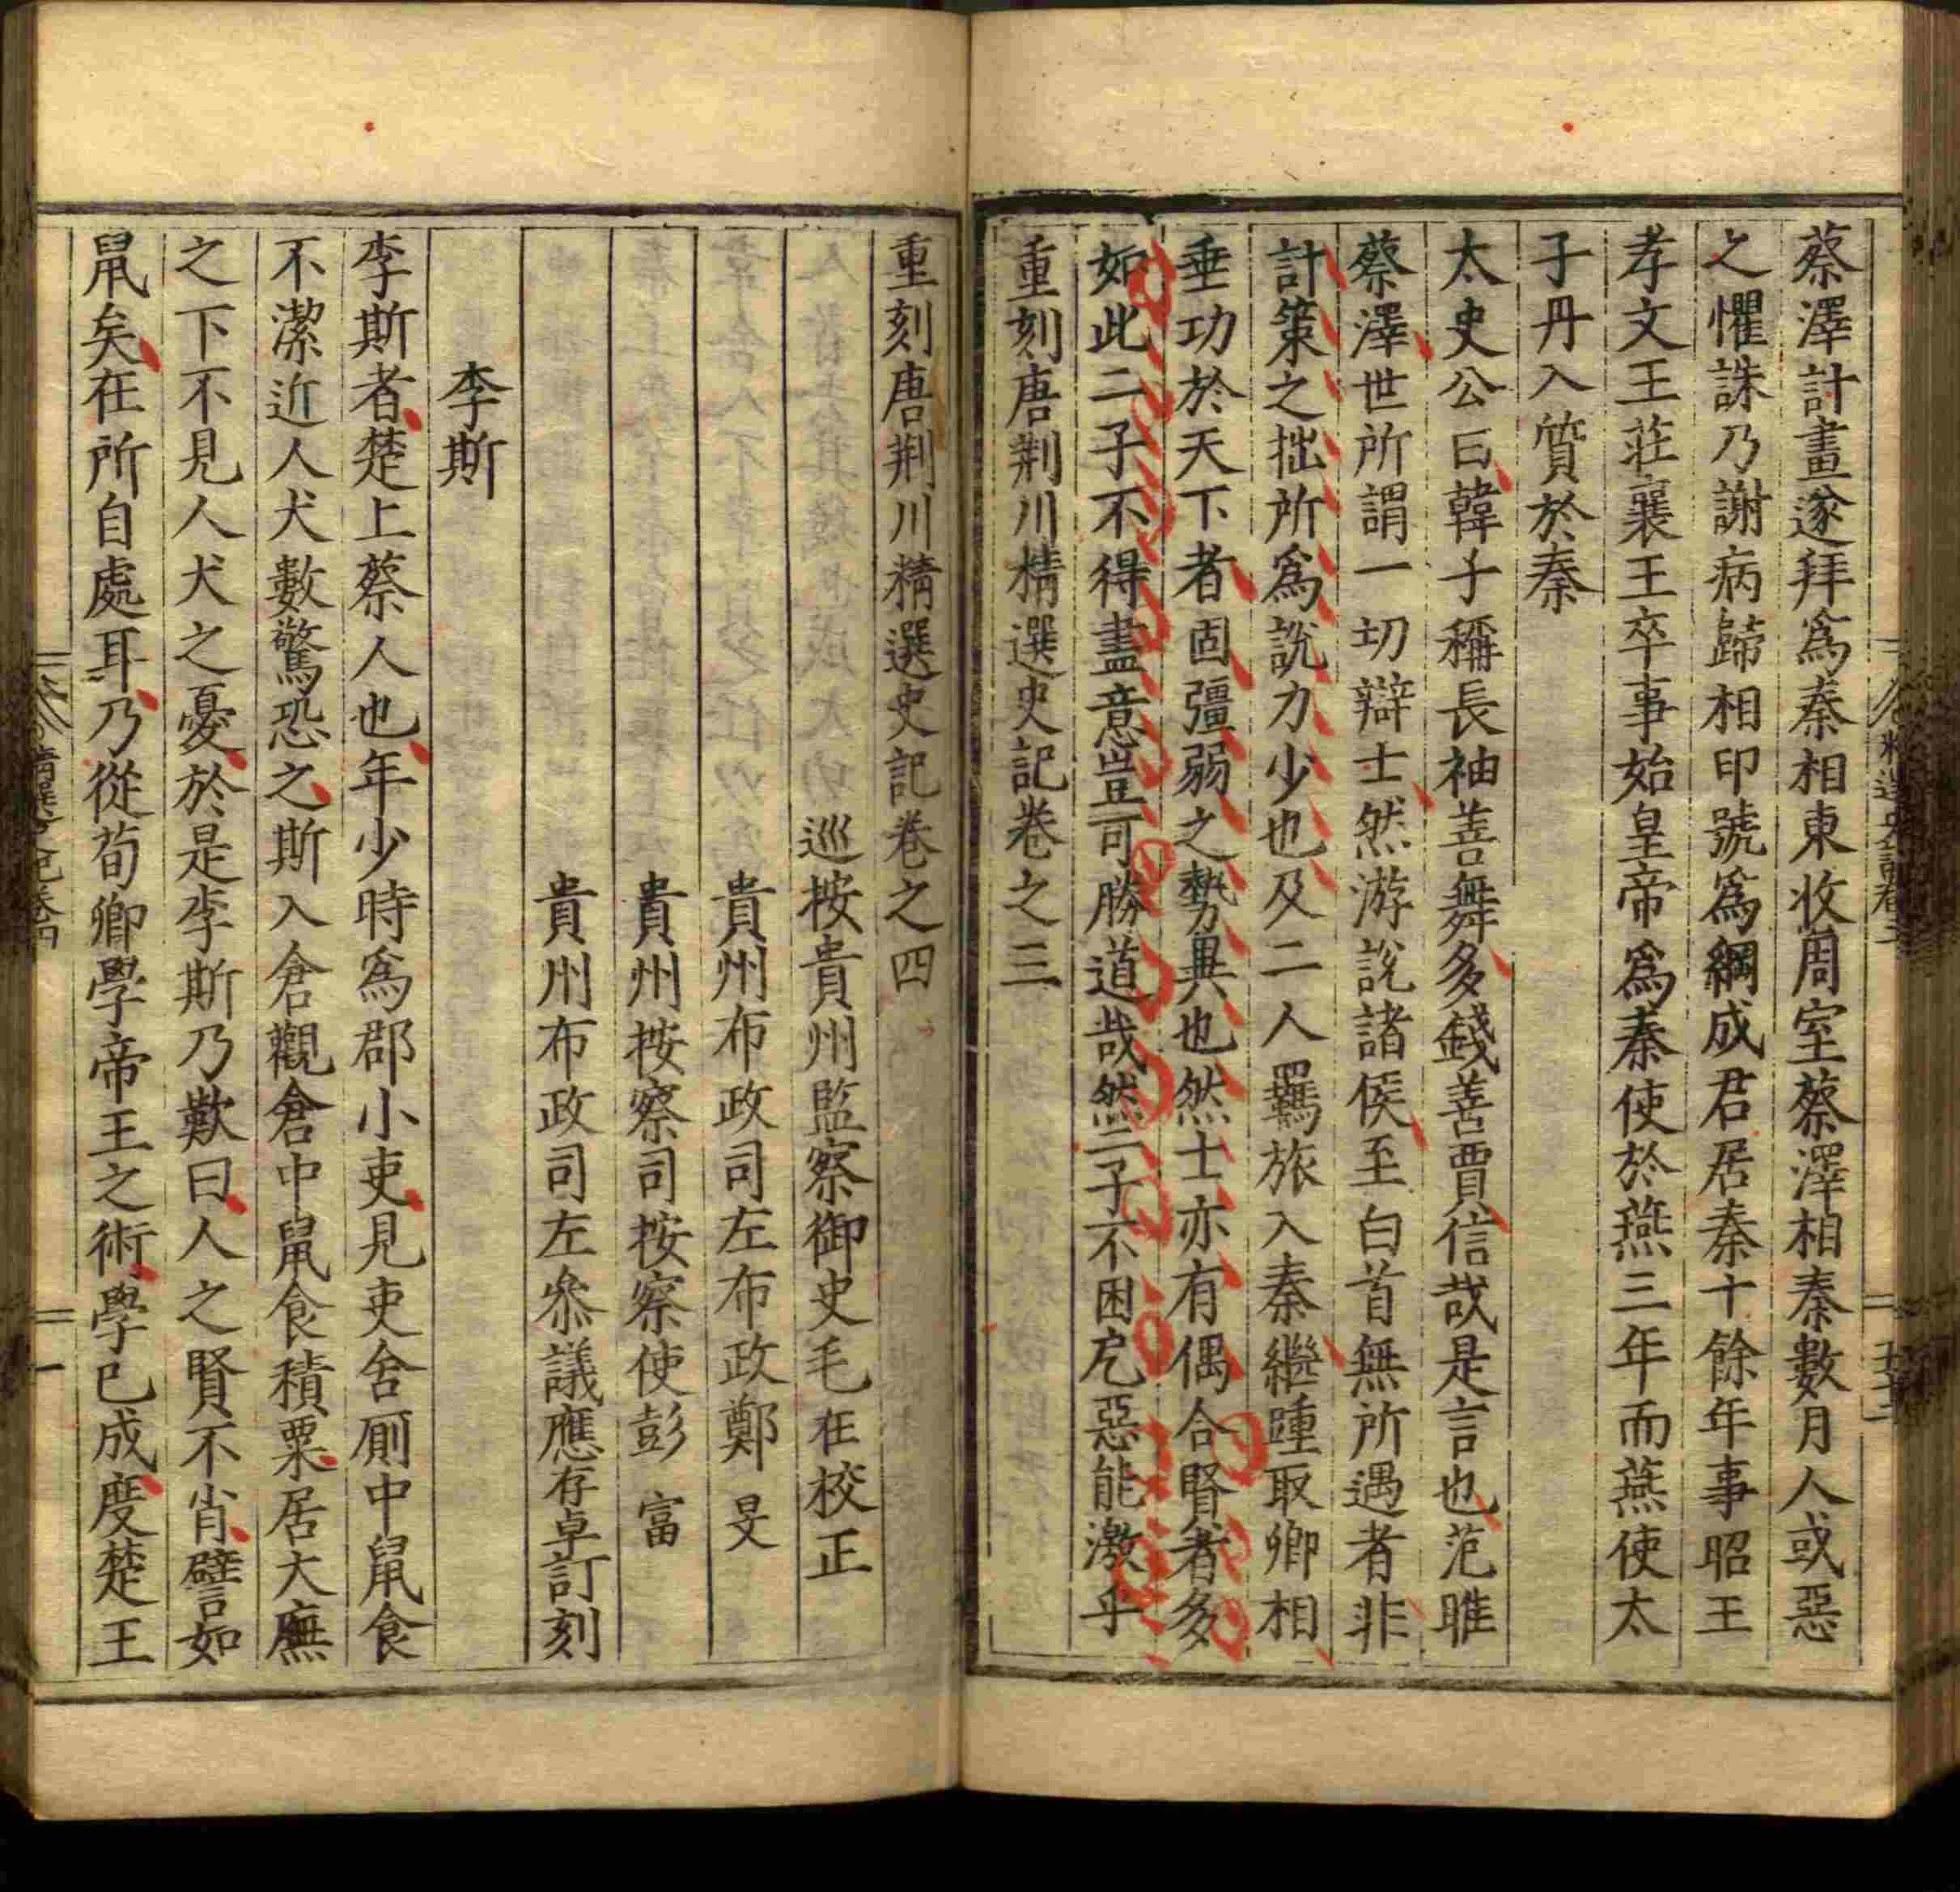 蔡澤計畫遂拜爲秦相東收周室蔡澤相秦數月人或惡
之懼誅乃謝病歸相印號爲綱成君居秦十餘年事昭王
孝文王莊襄王卒事始皇帝爲秦使於燕三年而燕使太
子丹入質於秦
太史公曰韓子稱長袖善舞多錢善賈信哉是言也范雎
蔡澤世所謂一切辯士然游說諸侯至白首無所遇者非
計策之拙所爲說力少也及二人羈旅入秦繼踵取卿相
垂功於天下者固彊弱之勢異也然士亦有偶合賢者多
如此二子不得盡意豈可勝道哉然二子不困戹惡能激乎
重刻唐荆川精選史記卷之三
重刻唐荆川精選史記卷之四
巡按貴州監察御史毛在校正
貴州布政司左布政鄭旻
貴州按察司按察使彭富
貴州布政司左叅議應存卓訂刻
李斯
李斯者楚上蔡人也年少時爲郡小吏見吏舍厠中鼠食
不潔近人犬數驚恐之斯入倉觀倉中鼠食積粟居大廡
之下不見人犬之憂於是李斯乃歎曰人之賢不肖譬如
鼠矣在所自處耳乃從荀卿學帝王之術學已成度楚王